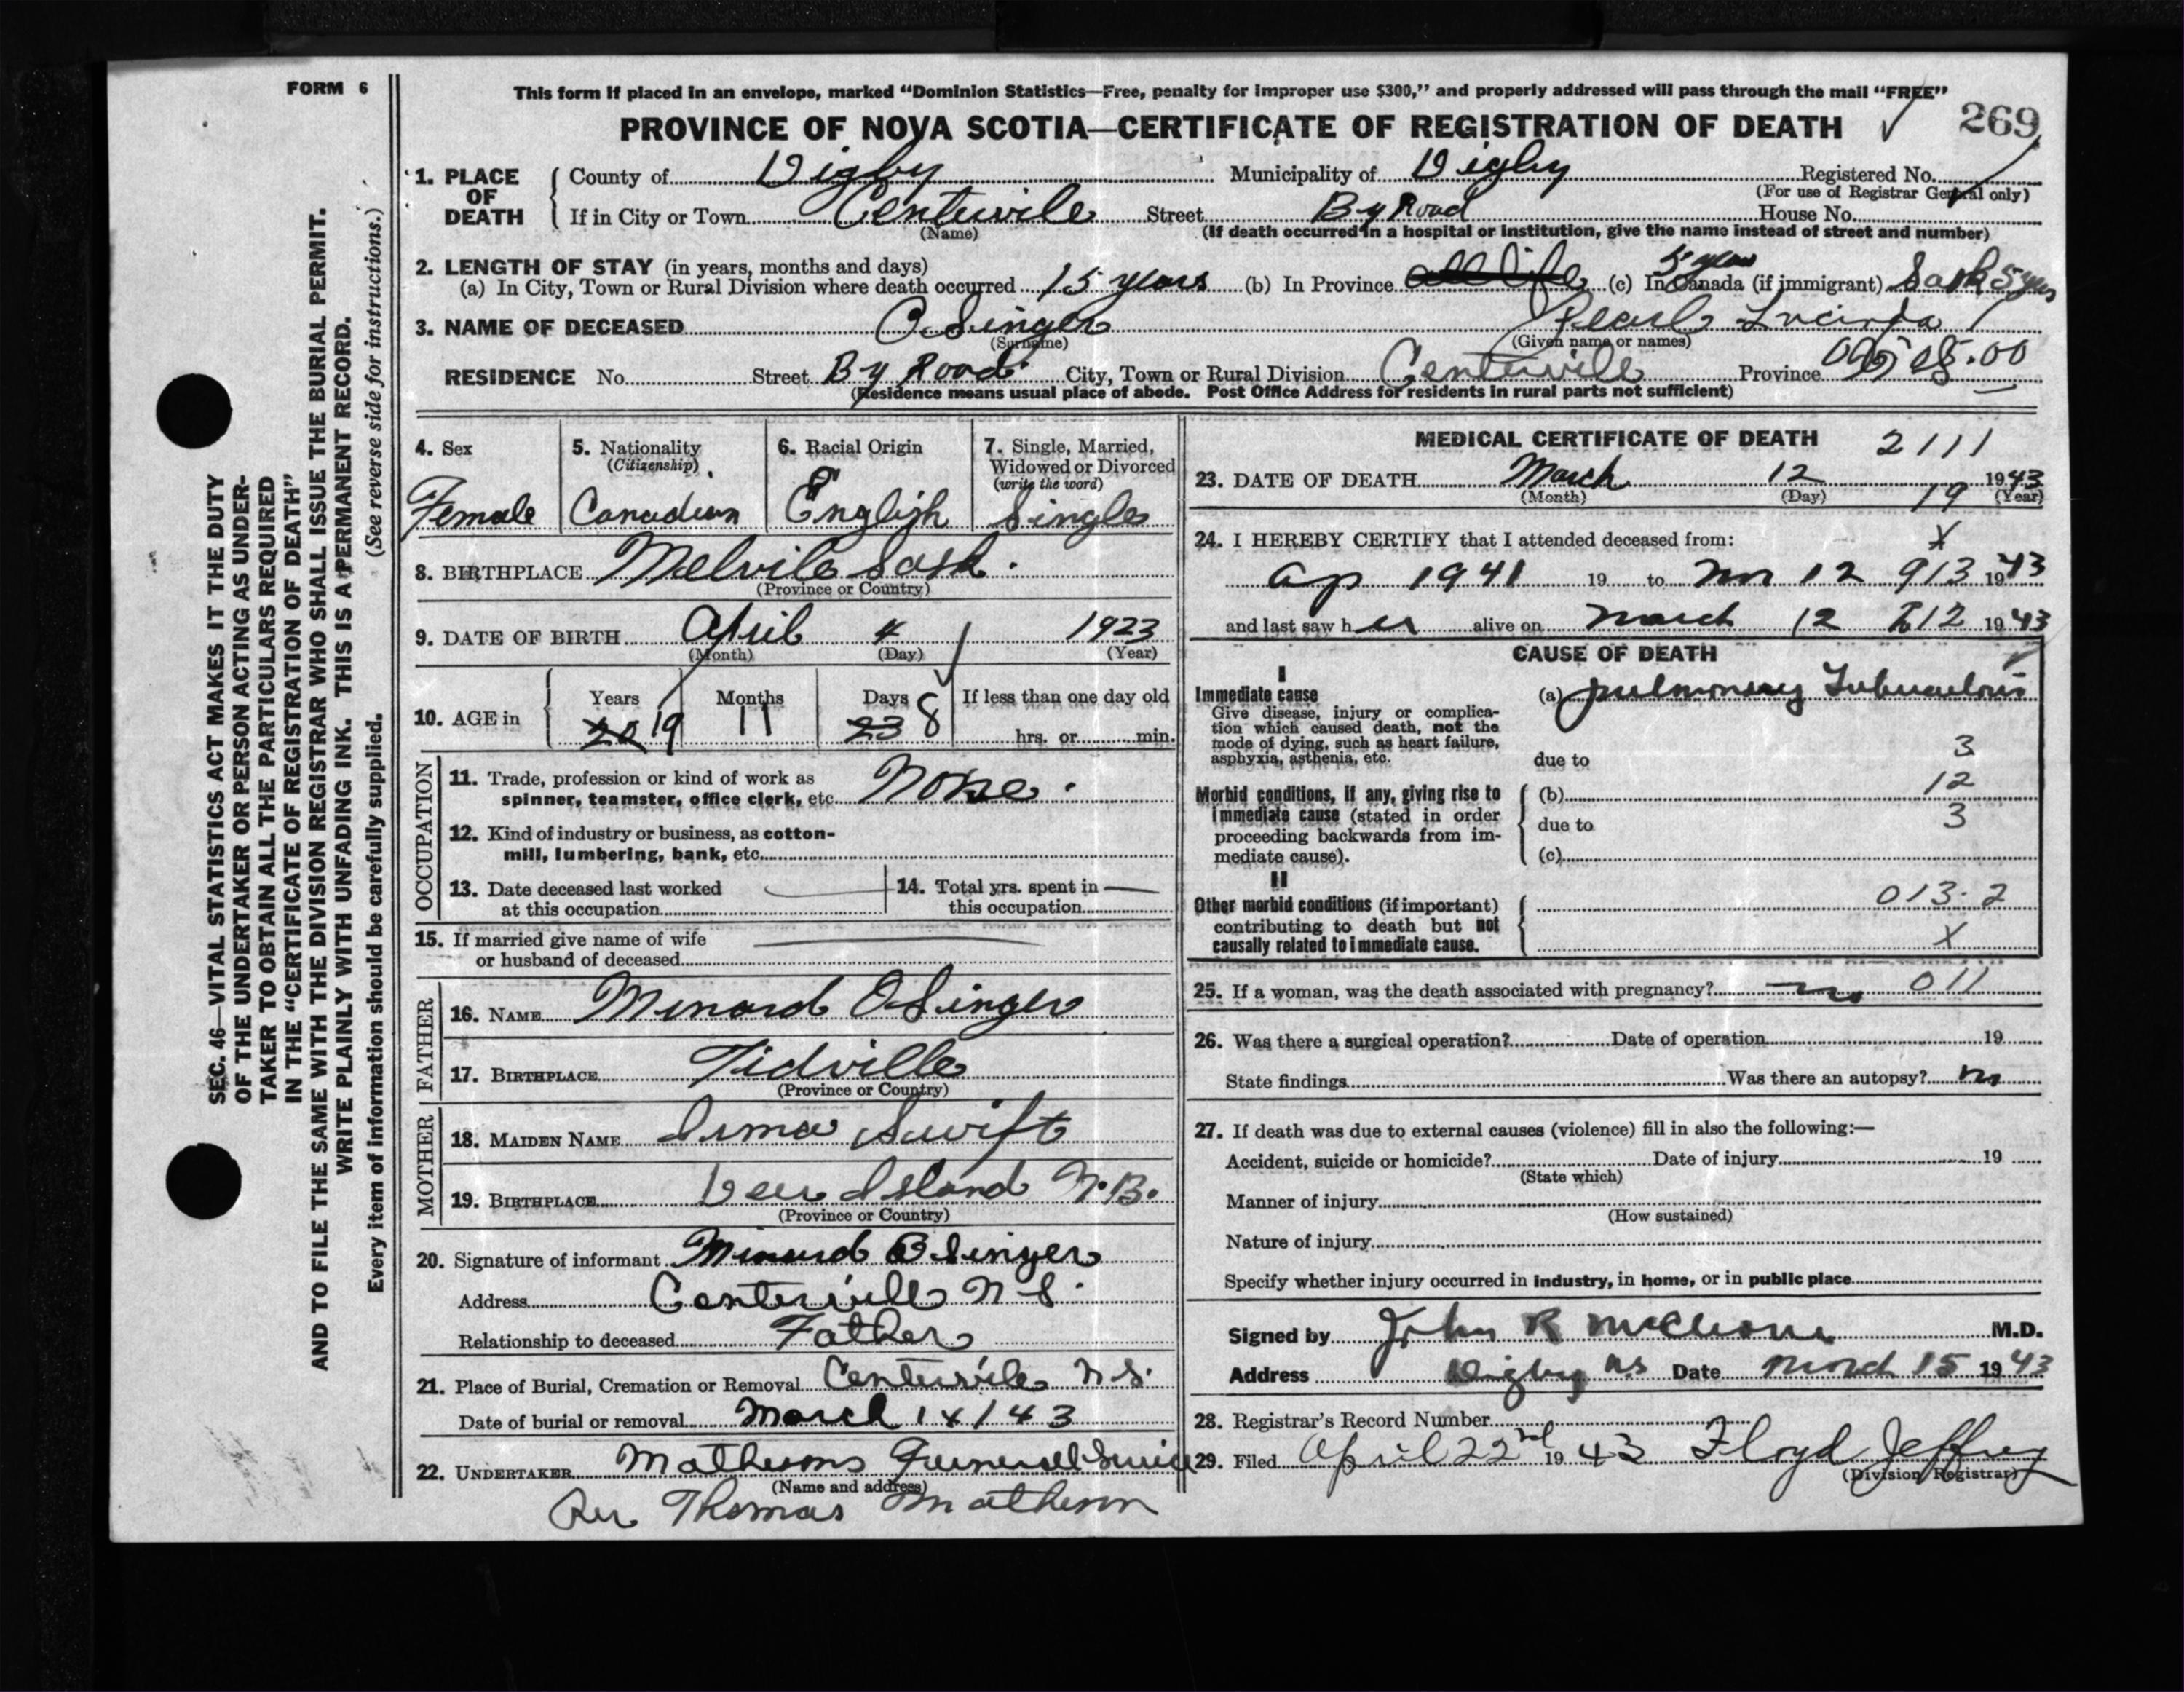 FORM 6
This form if placed in an envelope, marked "Dominion Statistics—Free, penalty for improper use $300," and properly addressed will pass through the mail "FREE"
PROVINCE OF NOVA SCOTIA—CERTIFICATE OF REGISTRATION OF DEATH
269
1. PLACE OF DEATH
County of Digby Municipality of Digby Registered No.
(For use of Registrar General only)
If in City or Town Centervile Street By Road House No.
(Name) (If death occurred in a hospital or institution, give the name instead of street and number)
2. LENGTH OF STAY (in years, months and days) 5 years
(a) In City, Town or Rural Division where death occurred 15 years (b) In Province all life (c) In Canada (if immigrant) Sask 5 yrs
3. NAME OF DECEASED O.Singer Pearl Lucinda
(Surname) (Given name or names)
RESIDENCE No. Street By Road City, Town or Rural Division Centervill Province
(Residence means usual place of abode. Post Office Address for residents in rural parts not sufficient)
4. Sex
Female
5. Nationality
(Citizenship)
Canadian
6. Racial Origin
English
7. Single, Married, Widowed or Divorced
(write the word)
Single
8. BIRTHPLACE Melvile Sask.
(Province or Country)
9. DATE OF BIRTH April 4 1923
(Month) (Day) (Year)
10. AGE in Years Months Days If less than one day old
20 19 11 23 8 hrs. or min.
OCCUPATION
11. Trade, profession or kind of work as
spinner, teamster, office clerk, etc. None.
12. Kind of industry or business, as cotton-
mill, lumbering, bank, etc.
13. Date deceased last worked
at this occupation
14. Total yrs. spent in
this occupation
15. If married give name of wife
or husband of deceased
FATHER
16. NAME Menard OSinger
17. BIRTHPLACE Tidville
(Province or Country)
MOTHER
18. MAIDEN NAME Irma Swift
19. BIRTHPLACE Deer Island N.B.
(Province or Country)
20. Signature of informant Minard OSinger
Address Centervill N S.
Relationship to deceased Father
21. Place of Burial, Cremation or Removal Centervile N.S.
Date of burial or removal March 14/43
22. UNDERTAKER Mathesons Funeral Service
(Name and address)
Per Thomas Matheson
MEDICAL CERTIFICATE OF DEATH 2111
23. DATE OF DEATH March 12 1943
(Month) (Day) 19 (Year)
24. I HEREBY CERTIFY that I attended deceased from: X
Ap 1941 19 to Mr 12 913 1943
and last saw her alive on March 12 212 1943
CAUSE OF DEATH
I
Immediate cause
Give disease, injury or complica-
tion which caused death, not the
mode of dying, such as heart failure,
asphyxia, asthenia, etc.
(a) Pulmonary Tuberculosis
due to 3
Morbid conditions, if any, giving rise to
immediate cause (stated in order
proceeding backwards from im-
mediate cause).
(b) 12
due to 3
(c)
II
Other morbid conditions (if important)
contributing to death but not
causally related to immediate cause.
013.2
X
25. If a woman, was the death associated with pregnancy? no 011
26. Was there a surgical operation? Date of operation 19
State findings Was there an autopsy? no
27. If death was due to external causes (violence) fill in also the following:—
Accident, suicide or homicide? Date of injury 19
(State which)
Manner of injury
(How sustained)
Nature of injury
Specify whether injury occurred in industry, in home, or in public place
Signed by John R McCleave M.D.
Address Digby NS Date March 15 1943
28. Registrar's Record Number
29. Filed April 22nd 1943 Floyd Jeffrey
(Division Registrar)
SEC. 46—VITAL STATISTICS ACT MAKES IT THE DUTY
OF THE UNDERTAKER OR PERSON ACTING AS UNDER-
TAKER TO OBTAIN ALL THE PARTICULARS REQUIRED
IN THE "CERTIFICATE OF REGISTRATION OF DEATH"
AND TO FILE THE SAME WITH THE DIVISION REGISTRAR WHO SHALL ISSUE THE BURIAL PERMIT.
WRITE PLAINLY WITH UNFADING INK. THIS IS A PERMANENT RECORD.
Every item of information should be carefully supplied. (See reverse side for instructions.)